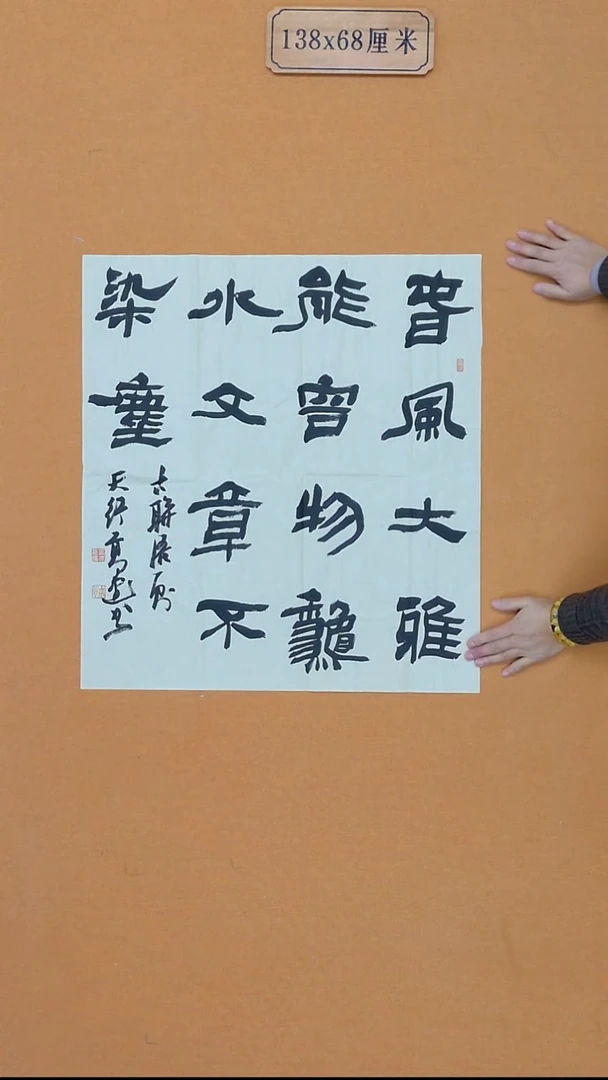 138x68厘米
旾風大雅
能容物龝
水文章不
染塵
古聯
天行 书